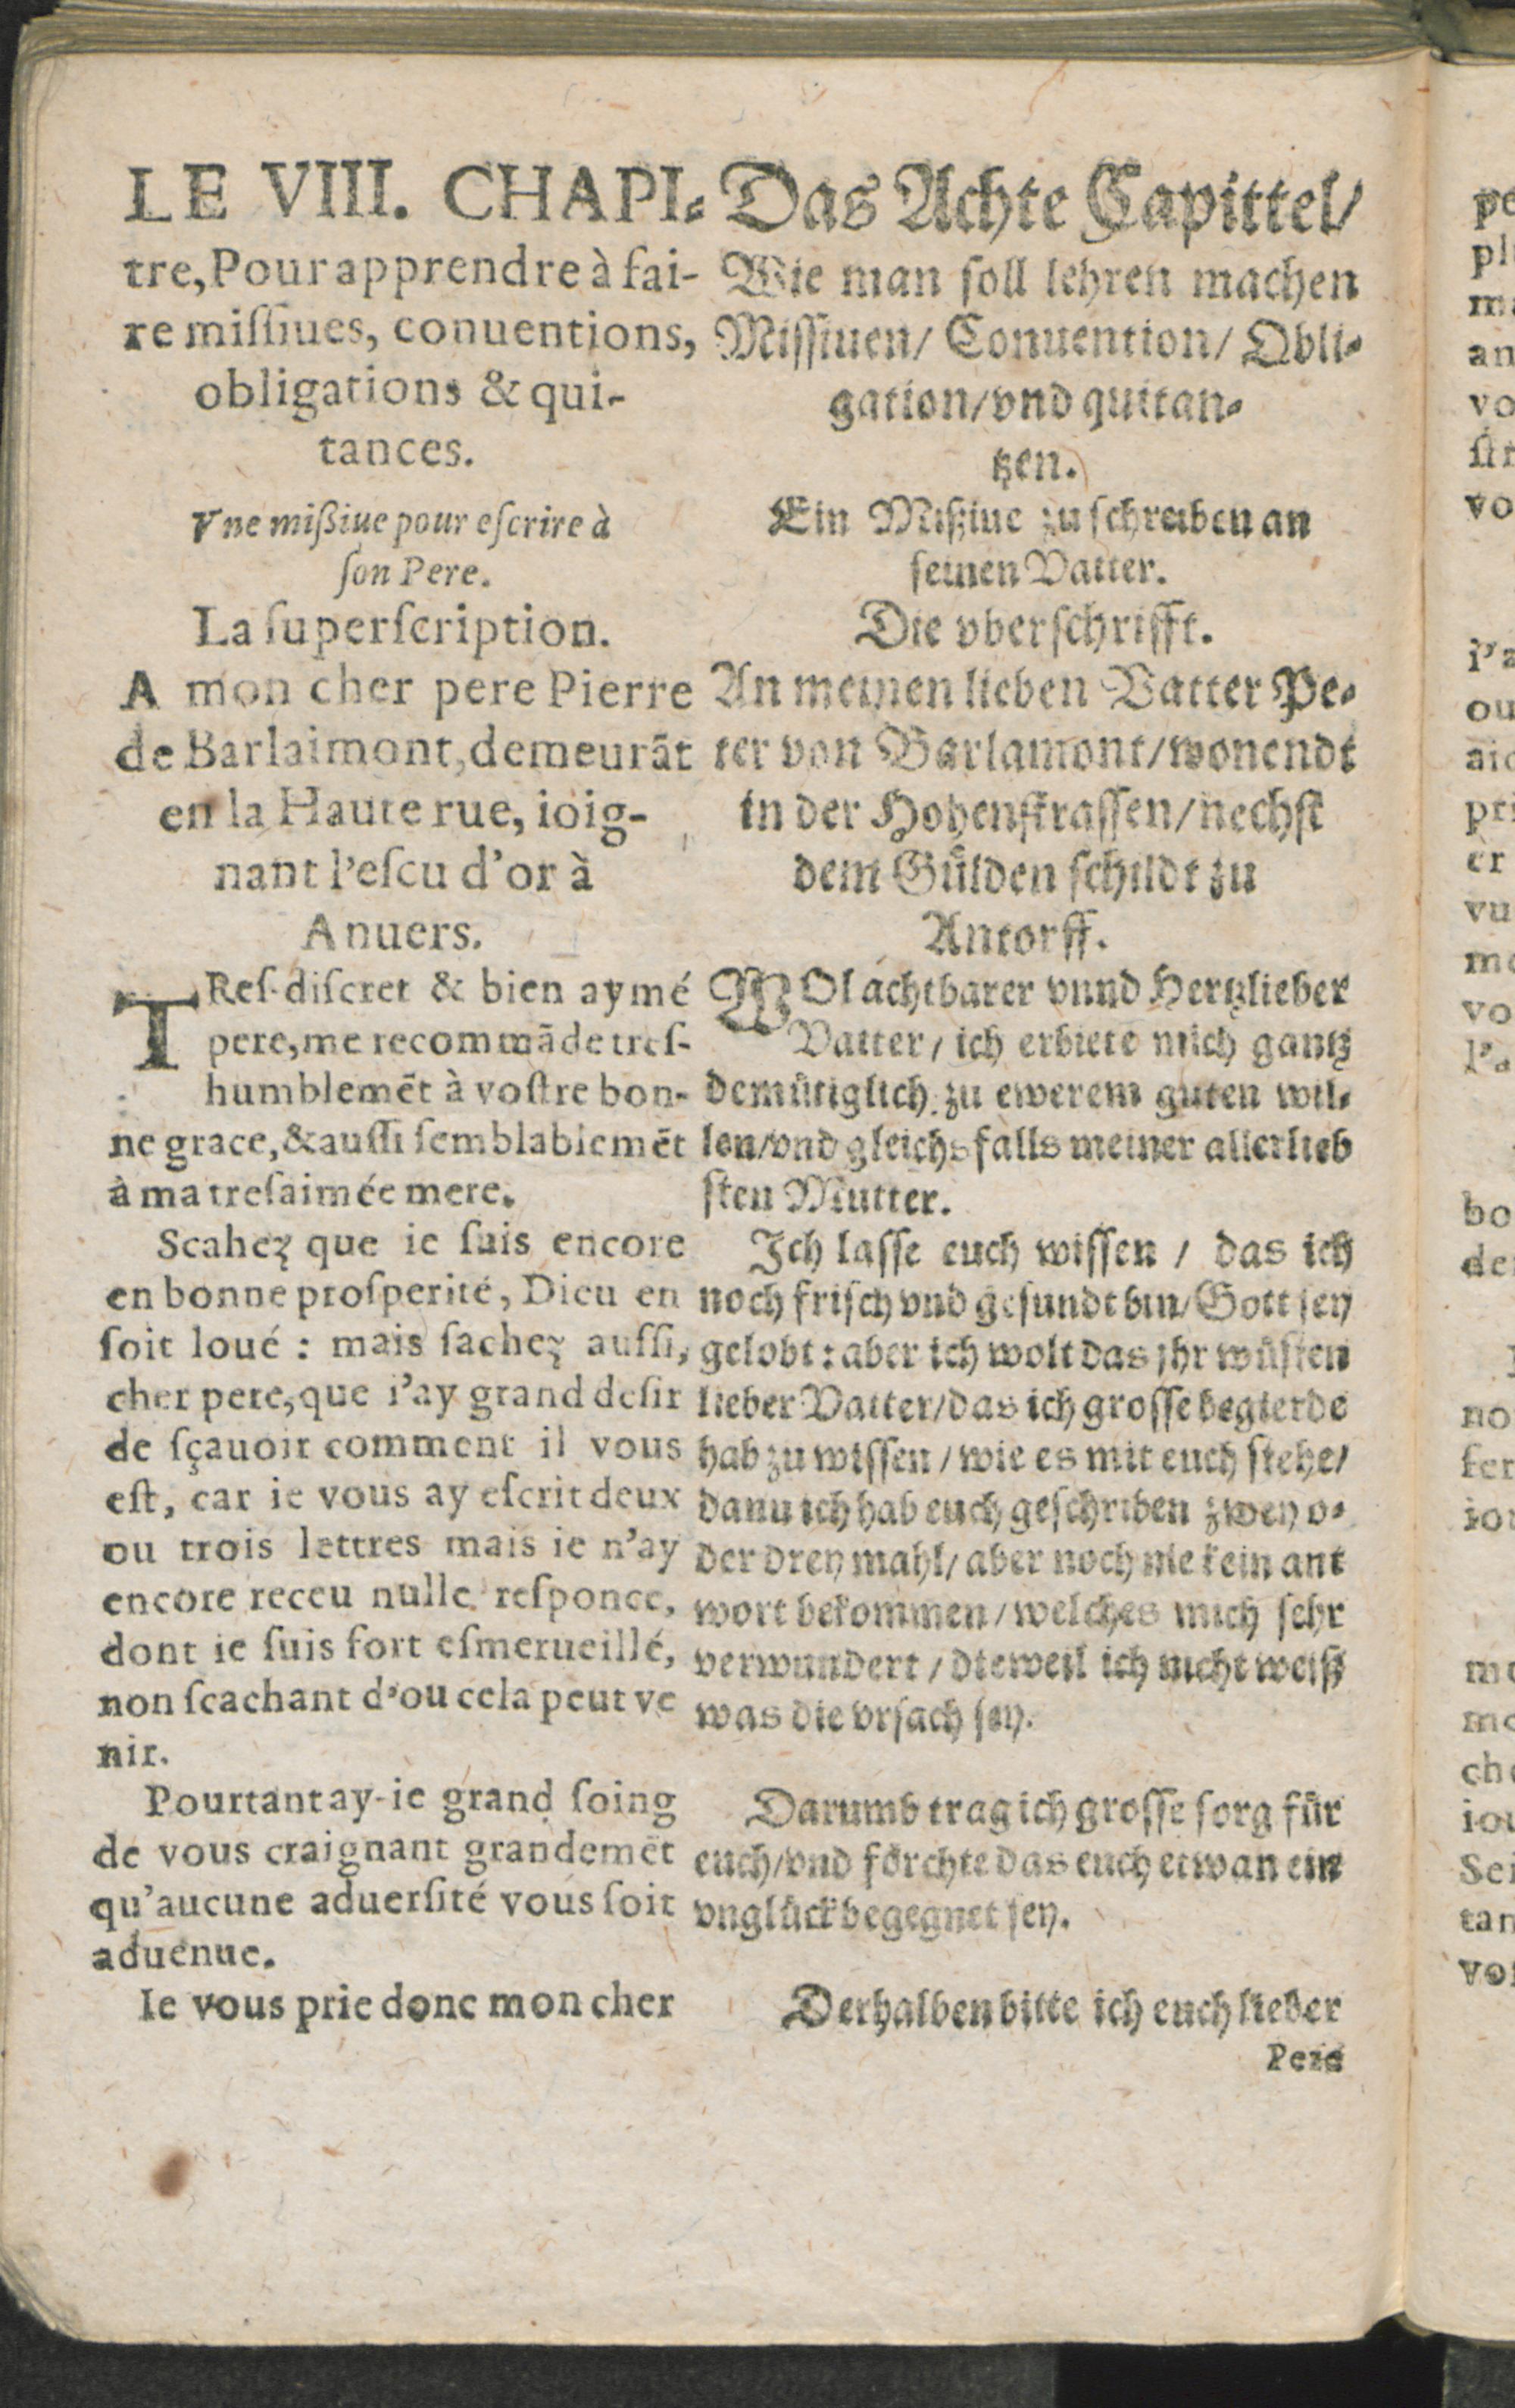 LE VIII. CHAPI-
tre, Pour apprendre à fai-
re miſſiues, conuentions,
obligations & qui-
tances.
Vne mißiue pour eſcrire à
ſon Pere.
La ſuperſcription.
A mon cher pere Pierre
de Barlaimont, demeurãt
en la Haute rue, ioig-
nant l'eſcu d'or à
Anuers.
TReſ-diſcret & bien aymé
pere, me recommãde treſ-
humblemẽt à voſtre bon-
ne grace, & auſſi ſemblablemẽt
à ma treſaimée mere.
Scahez que ie ſuis encore
en bonne proſperité, Dieu en
ſoit loué : mais ſachez auſſi,
cher pere, que i'ay grand deſir
de ſçauoir comment il vous
eſt, car ie vous ay eſcrit deux
ou trois lettres mais ie n'ay
encore receu nulle reſponce,
dont ie ſuis fort eſmerueillé,
non ſcachant d'ou cela peut ve
nir.
Pourtant ay-ie grand ſoing
de vous craignant grandemẽt
qu'aucune aduerſité vous ſoit
aduenue.
Ie vous prie donc mon cher
Das Achte Capittel/
Wie man ſoll lehren machen
Miſſiuen/ Conuention/ Obli-
gation/ vnd quitan-
tzen.
Ein Mißiue zu ſchreiben an
ſeinen Vatter.
Die vberſchrifft.
An meinen lieben Vatter Pe-
ter von Barlamont/ wonendt
in der Hohenſtraſſen/ nechſt
dem Gülden ſchildt zu
Antorff.
WOl achtbarer vnnd Hertzlieber
Vatter/ ich erbiete mich gantz
demütiglich zu ewerem guten wil-
len/ vnd gleichsfalls meiner allerlieb
ſten Mutter.
Ich laſſe euch wiſſen / das ich
noch friſch vnd geſundt bin/ Gott ſey
gelobt: aber ich wolt das jhr wüſten
lieber Vatter/ das ich groſſe begierde
hab zu wiſſen / wie es mit euch ſtehe/
dann ich hab euch geſchriben zwey o-
der drey mahl/ aber noch nie kein ant
wort bekommen / welches mich ſehr
verwundert / dieweil ich nicht weiß
was die vrſach ſey.
Darumb trag ich groſſe ſorg für
euch/ vnd förchte das euch etwan ein
vnglück begegnet ſey.
Derhalben bitte ich euch lieber
Pere